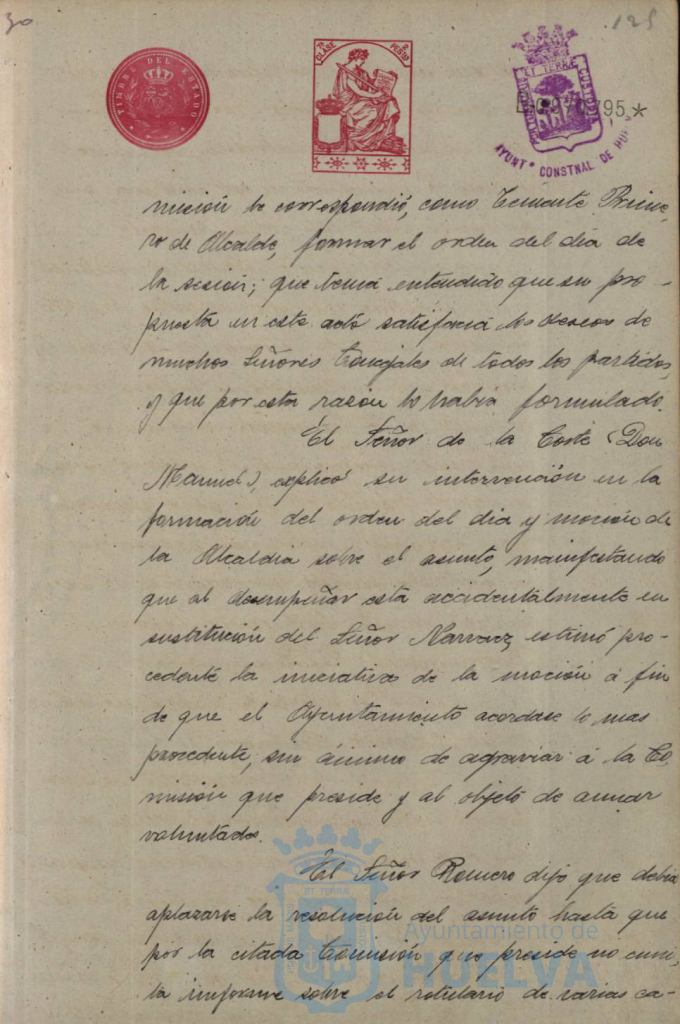 30
125
TIMBRE DEL ESTADO
7ª CLASE
2 PESTAS
ET TERRÆ
095*
AYUNTº CONSTNAL DE HUELVA
misión le correspondió, como Teniente Prime-
ro de Alcalde, formar el orden del día de
la sesión; que tenía entendido que su pro-
puesta en este acto satisfacía los deseos de
muchos Señores Concejales de todos los partidos,
y que por esta razón lo había formulado.
El Señor de la Corte (Don
Manuel), explicó su intervención en la
formación del orden del día y moción de
la Alcaldía sobre el asunto, manifestando
que al desempeñar esta accidentalmente en
sustitución del Señor Narvaez estimó pro-
cedente la iniciativa de la moción á fin
de que el Ayuntamiento acordase lo mas
procedente, sin ánimo de agraviar á la Co-
misión que preside y al objeto de aunar
voluntades.
El Señor Romero dijo que debía
aplazarse la resolución del asunto hasta que
por la citada Comisión que preside no emi-
ta informe sobre el rotulario de varias ca-
ET TERRÆ
Ayuntamiento de
HUELVA